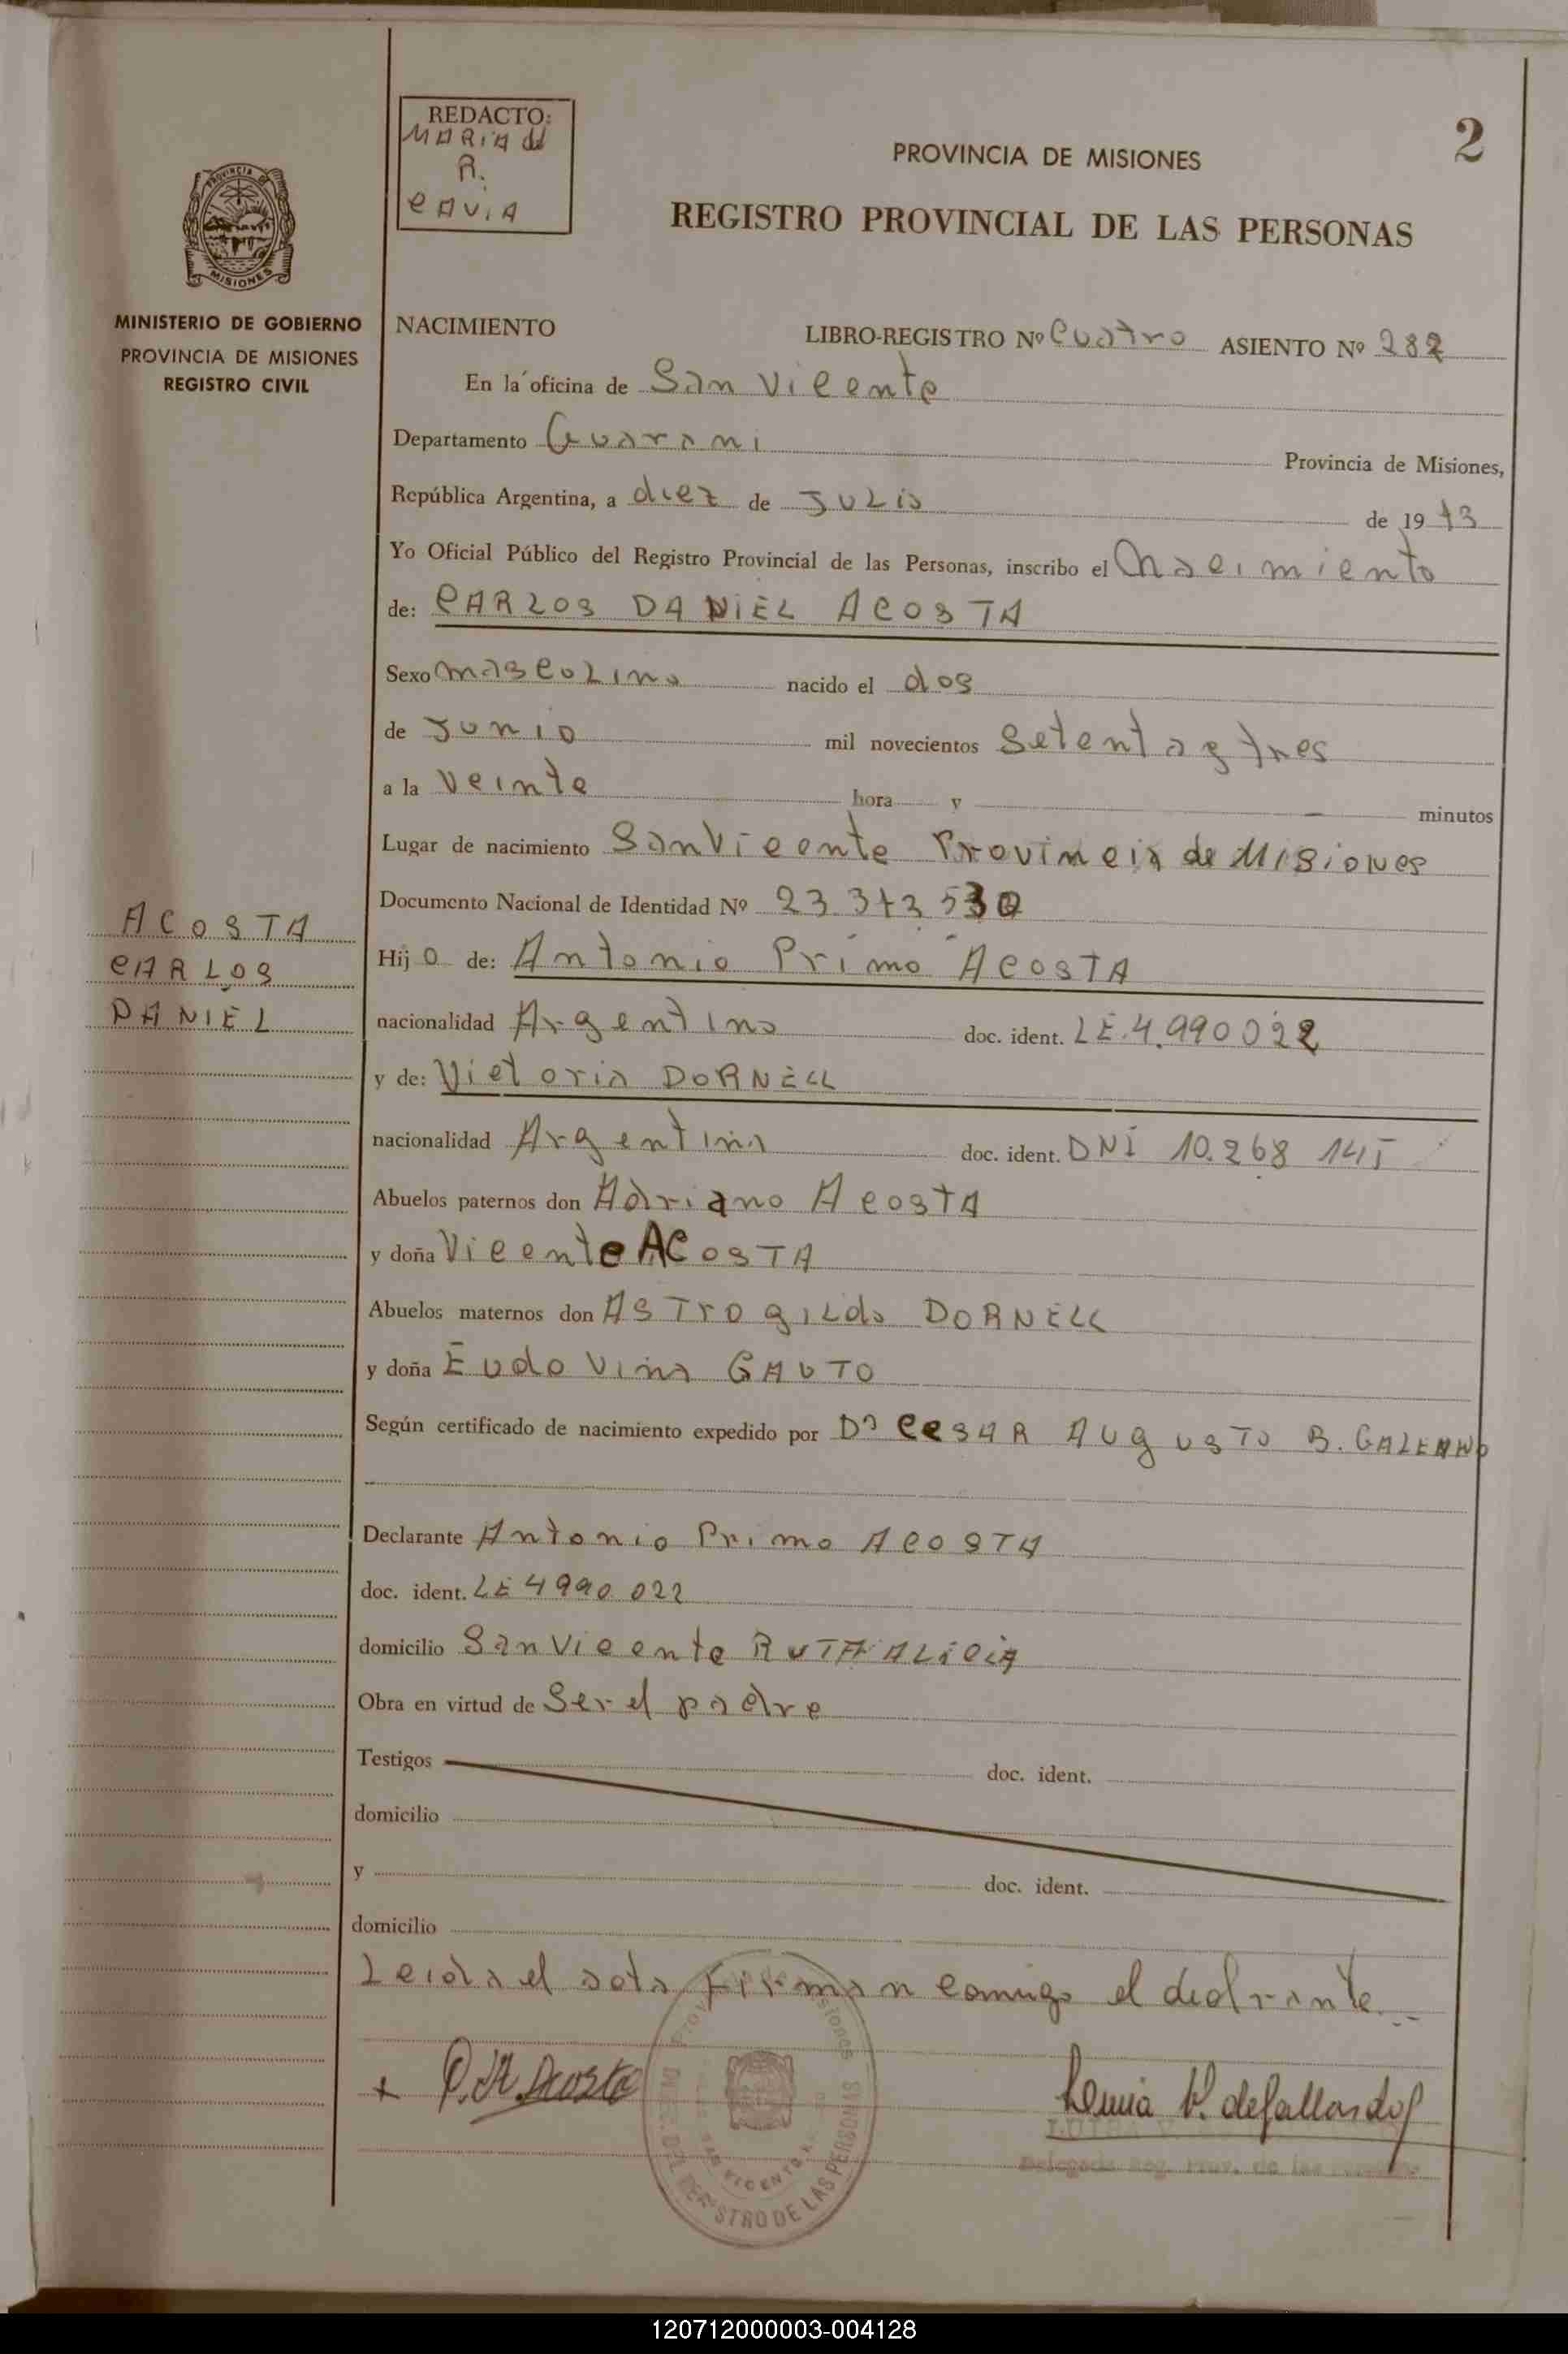 REDACTO:
MARIA del
R.
CAVIA
2
PROVINCIA DE MISIONES
REGISTRO PROVINCIAL DE LAS PERSONAS
PROVINCIA DE
MISIONES
MINISTERIO DE GOBIERNO
PROVINCIA DE MISIONES
REGISTRO CIVIL
NACIMIENTO LIBRO-REGISTRO Nº Cuatro ASIENTO Nº 282
En la oficina de San Vicente
Departamento Guarani Provincia de Misiones,
República Argentina, a diez de JULio de 19 73
Yo Oficial Público del Registro Provincial de las Personas, inscribo el Nacimiento
de: CARLOS DANIEL ACOSTA
Sexo mascuLino nacido el dos
de Junio mil novecientos Setenta y tres
a la Veinte hora y minutos
Lugar de nacimiento San Vicente Provincia de Misiones
Documento Nacional de Identidad Nº 23.373.530
ACOSTA
CARLOS
DANIEL
Hij o de: Antonio Primo ACOSTA
nacionalidad Argentino doc. ident. LE.4.990022
y de: Victoria DORNELL
nacionalidad Argentina doc. ident. DNI 10.268 145
Abuelos paternos don Adriano ACOSTA
y doña Vicente ACOSTA
Abuelos maternos don ASTrogiLdo DORNELL
y doña Eudo Vina GAUTO
Según certificado de nacimiento expedido por Dº CeSAR AUgUSTO B. GALEANO
Declarante Antonio Primo ACOSTA
doc. ident. LE 4990.022
domicilio San Vicente RUTA ALICIA
Obra en virtud de Ser el padre
Testigos doc. ident.
domicilio
y doc. ident.
domicilio
Leida el acta Firman conmigo el declarante
Acosta
de Gallardo
SAN VICENTE
REGISTRO DE LAS PERSONAS
Delegada Reg. Prov. de las Personas
120712000003-004128